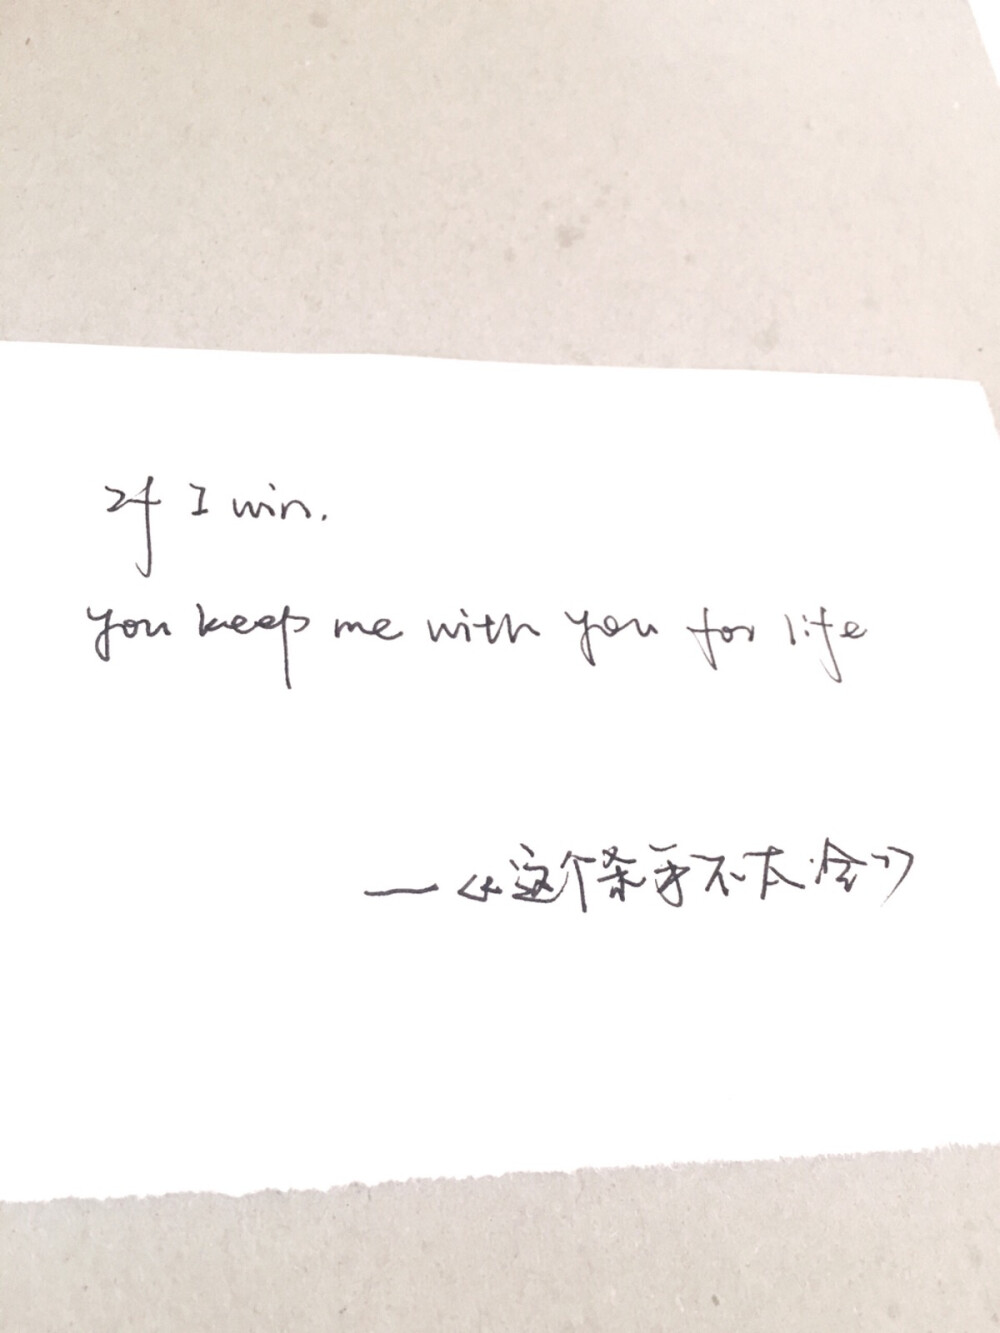 If I win.
you keep me with you for life
—《这个杀手不太冷》